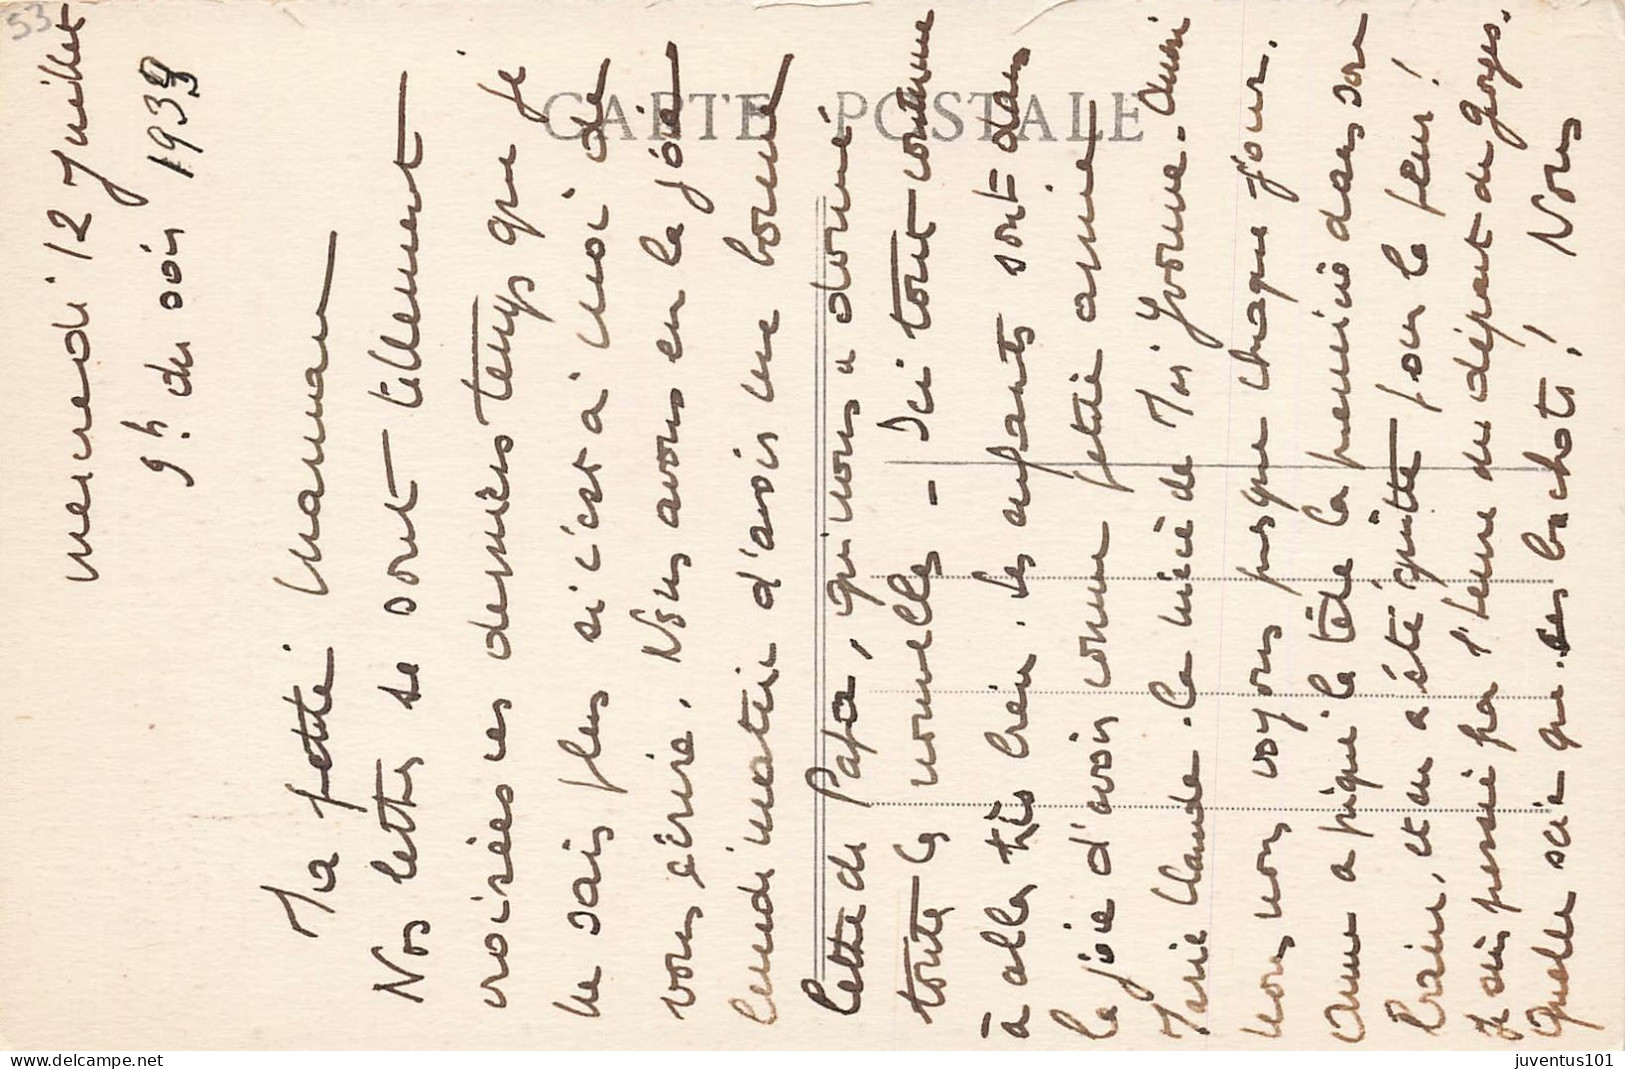 53
CARTE POSTALE
mercredi 12 Juillet
9h du soir 1939
Ma petite Maman
Nos lettres se sont tellement
croisées ces derniers temps que je
ne sais plus si c'est à moi de
vous écrire. Nous avons eu la joie
lundi matin d'avoir une bonne
lettre de Papa, qui nous a donné
toutes les nouvelles – Ici tout continue
à aller très bien. Les enfants sont dans
la joie d'avoir comme petite amie
Marie Claude. la nièce de Melle Yvonne. Aussi
nous nous voyons presque chaque jour.
Anne a piqué la tête la première dans son
bain, et en a été quitte pour la peur!
Je suis pressée par l'heure du départ du Gorges.
Quelle scie que ces bachots! Nous
juventus101